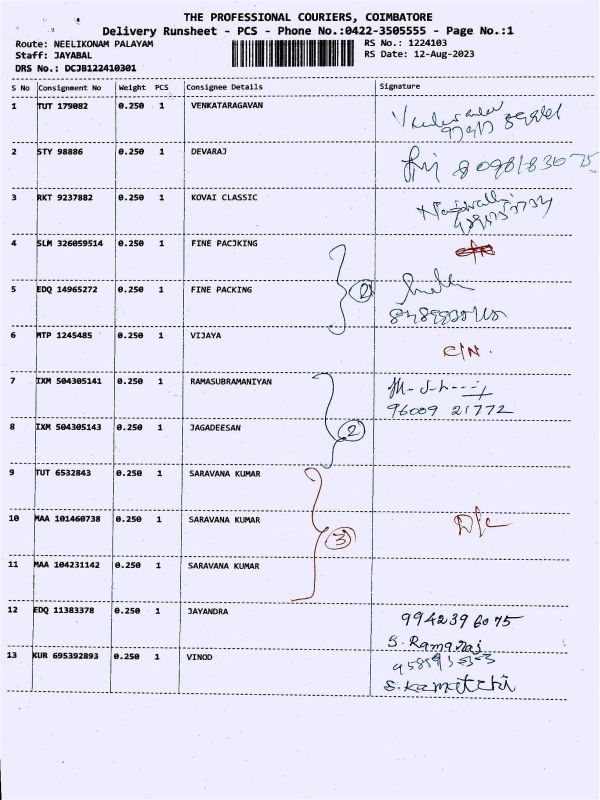 THE PROFESSIONAL COURIERS, COIMBATORE
Delivery Runsheet - PCS - Phone No.:0422-3505555 - Page No.:1
Route: NEELIKONAM PALAYAM RS No.: 1224103
Staff: JAYABAL RS Date: 12-Aug-2023
DRS No.: DCJB122410301
S No Consignment No Weight PCS Consignee Details Signature
1 TUT 179082 0.250 1 VENKATARAGAVAN
2 STY 98886 0.250 1 DEVARAJ
3 RKT 9237882 0.250 1 KOVAI CLASSIC
4 SLM 326059514 0.250 1 FINE PACJKING
5 EDQ 14965272 0.250 1 FINE PACKING
2
6 MTP 1245485 0.250 1 VIJAYA C/N.
7 IXM 504305141 0.250 1 RAMASUBRAMANIYAN
96009 21772
8 IXM 504305143 0.250 1 JAGADEESAN
2
9 TUT 6532843 0.250 1 SARAVANA KUMAR
10 MAA 101460738 0.250 1 SARAVANA KUMAR D/C
3
11 MAA 104231142 0.250 1 SARAVANA KUMAR
12 EDQ 11383378 0.250 1 JAYANDRA 9942396075
S. Ramaraj
13 KUR 695392893 0.250 1 VINOD
S. Kamatchi